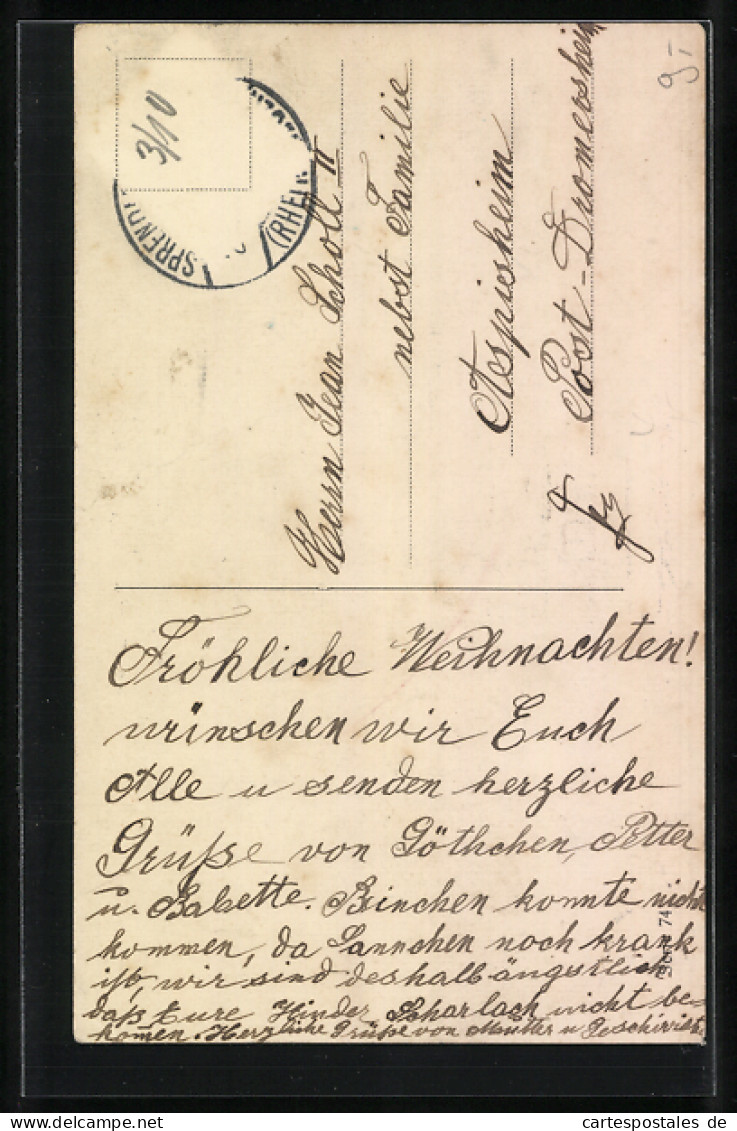 9.-
3/10
SPRENDL
(RHEIN
Herrn Jean Scholl II
nebst Familie
Aspisheim
Post-Dromersheim
Fröhliche Weihnachten!
wünschen wir Euch
Alle u senden herzliche
Grüße von Göthchen, Petter
u. Babette. Binchen konnte nicht
kommen, da Hannchen noch krank
ist, wir sind deshalb ängstlich
daß Eure Kinder Scharlach nicht be-
komen. Herzliche Grüße von Mutter u Geschwister
74
cartespostales de